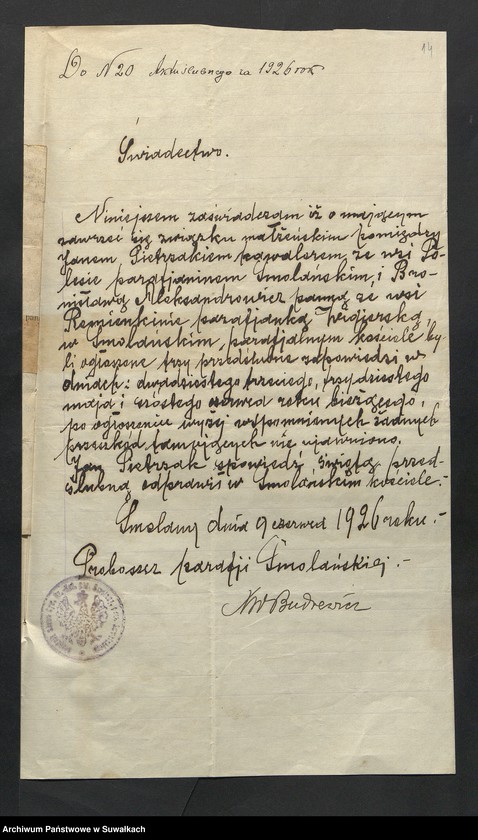 14
Do N 20 Aktu ślubnego za 1926 rok
Świadectwo.
Niniejszem zaświadczam iż o mającym
zawrzeć się związku małżeńskim pomiędzy
Janem Pietrzakiem kawalerem, ze wsi Po-
lesie parafjaninem Smolańskim, i Bro-
nisławą Aleksandrowicz panną ze wsi
Remieńkinie parafjanką Wigierską,
w Smolańskim, parafjalnym kościele by-
li ogłoszone trzy przedślubne zapowiedzi w
dniach: dwudziestego trzeciego, trzydziestego
maja i szóstego czerwca roku bieżącego,
po ogłoszeniu wyżej wspomnianych żadnych
przeszkód tamujących nie ujawniono.
Jan Pietrzak spowiedź świętą przed-
ślubną odprawił w Smolańskim kościele.-
Smolany dnia 9 czerwca 1926 roku.-
Proboszcz parafji Smolańskiej.-
Budrewicz
Archiwum Państwowe w Suwałkach